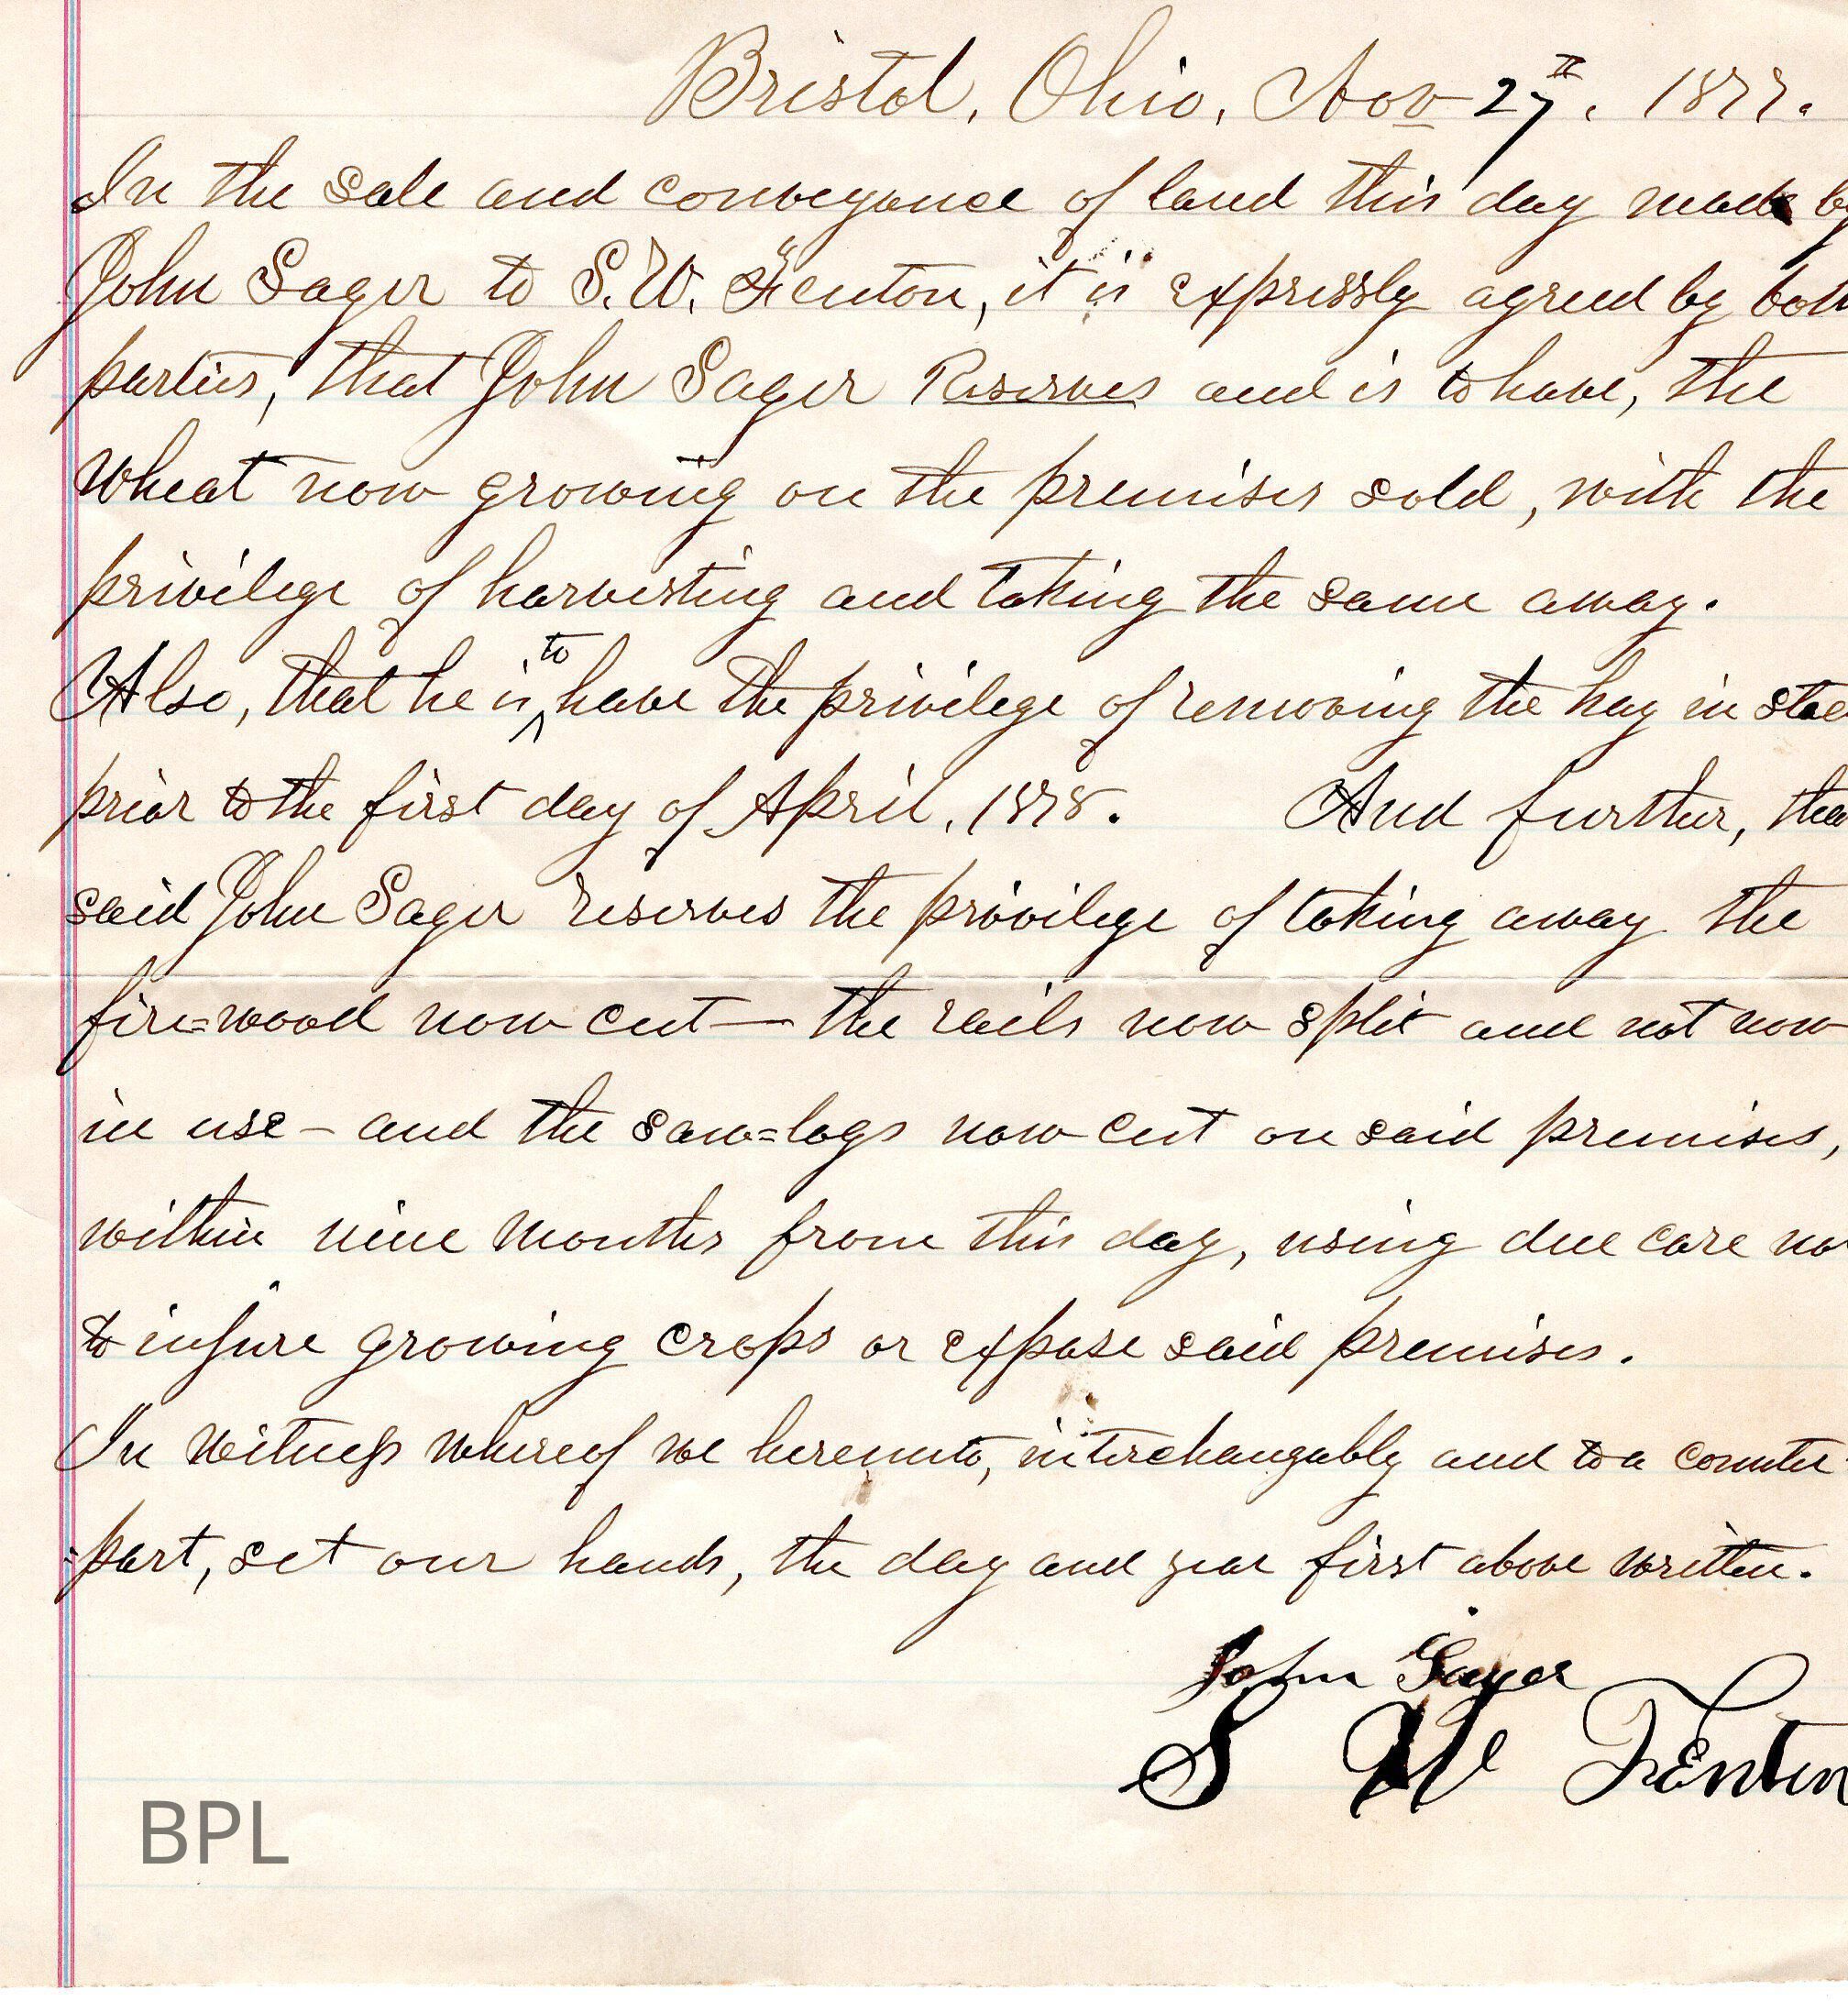 Bristol, Ohio, Nov 27th, 1877.
In the sale and conveyance of land this day made by
John Sager to S. W. Fenton, it is expressly agreed by both
parties, that John Sager Reserves and is to have, the
wheat now growing on the premises sold, with the
privilege of harvesting and taking the same away.
Also, that he is to have the privilege of removing the hay in stac
prior to the first day of April, 1878. And further, the
said John Sager reserves the privilege of taking away the
fire=wood now cut — the rails now split and not now
in use - and the saw=logs now cut on said premises,
within nine months from this day, using due care not
to injure growing crops or expose said premises.
In witness whereof we hereunto, interchangably and to a counter-
=part, set our hands, the day and year first above written.
John Sager
S W Fenton
BPL